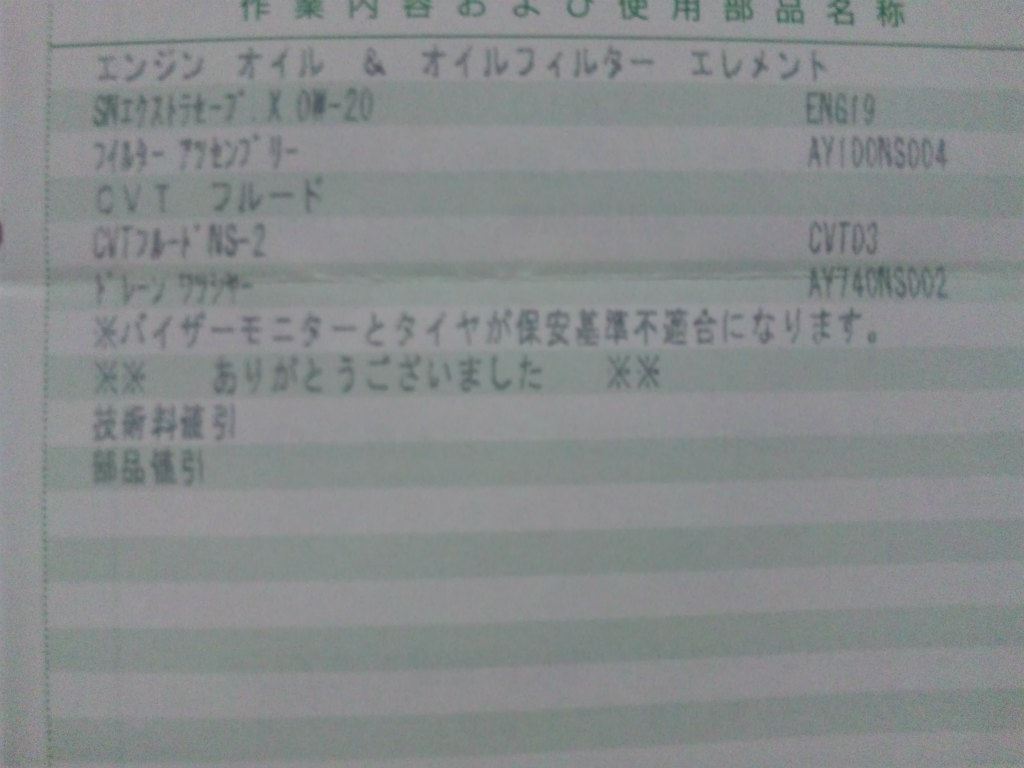 作業内容および使用部品名称
エンジン オイル & オイルフィルター エレメント
SNエクストラセーブ.X 0W-20 ENG19
フィルター アッセンブリー AY100NS004
CVT フルード
CVTフルードNS-2 CVT03
ドレーン ワッシャー AY740NS002
※バイザーモニターとタイヤが保安基準不適合になります。
※※ ありがとうございました ※※
技術料値引
部品値引